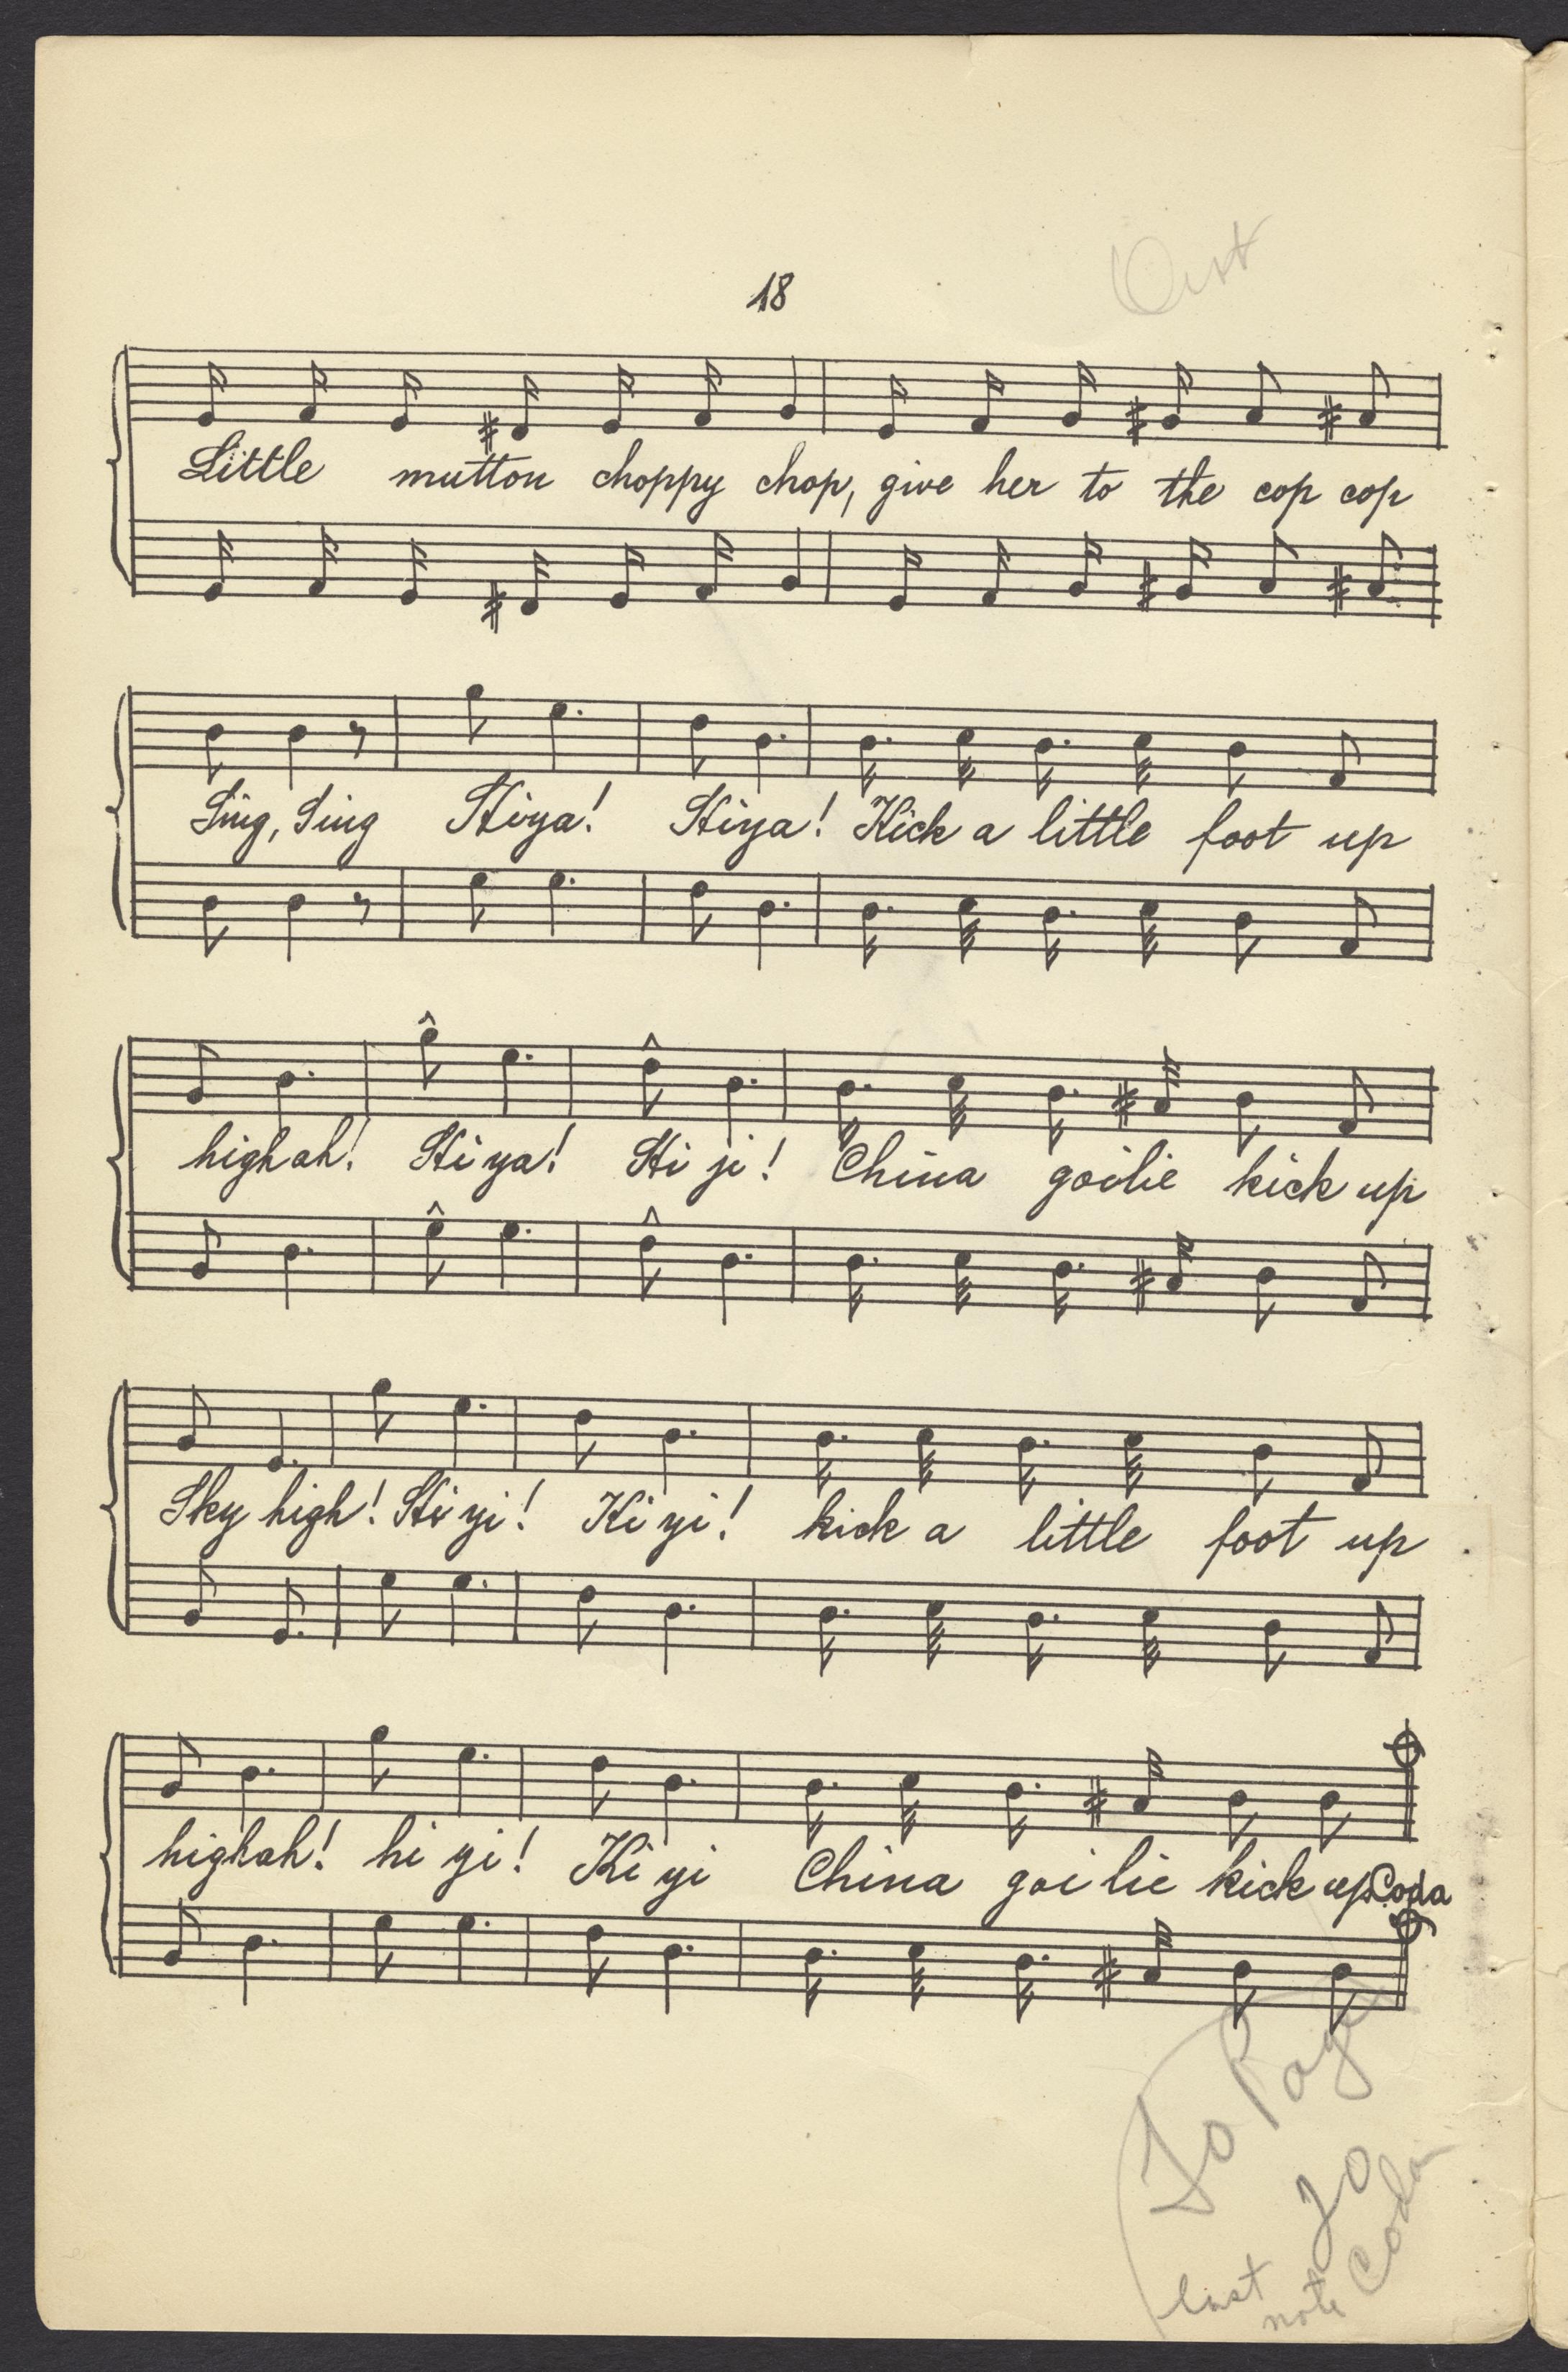 18
Little mutton choppy chop, give her to the cop cop
Sing, Sing Hiya! Hiya! Kick a little foot up
high ah! Hi ya! Hi yi! China goilie kick up
Sky high! Hi yi! Ki yi! kick a little foot up
high ah! hi yi! Ki yi China goi lie kick up Coda
To Page
20
last note Coda